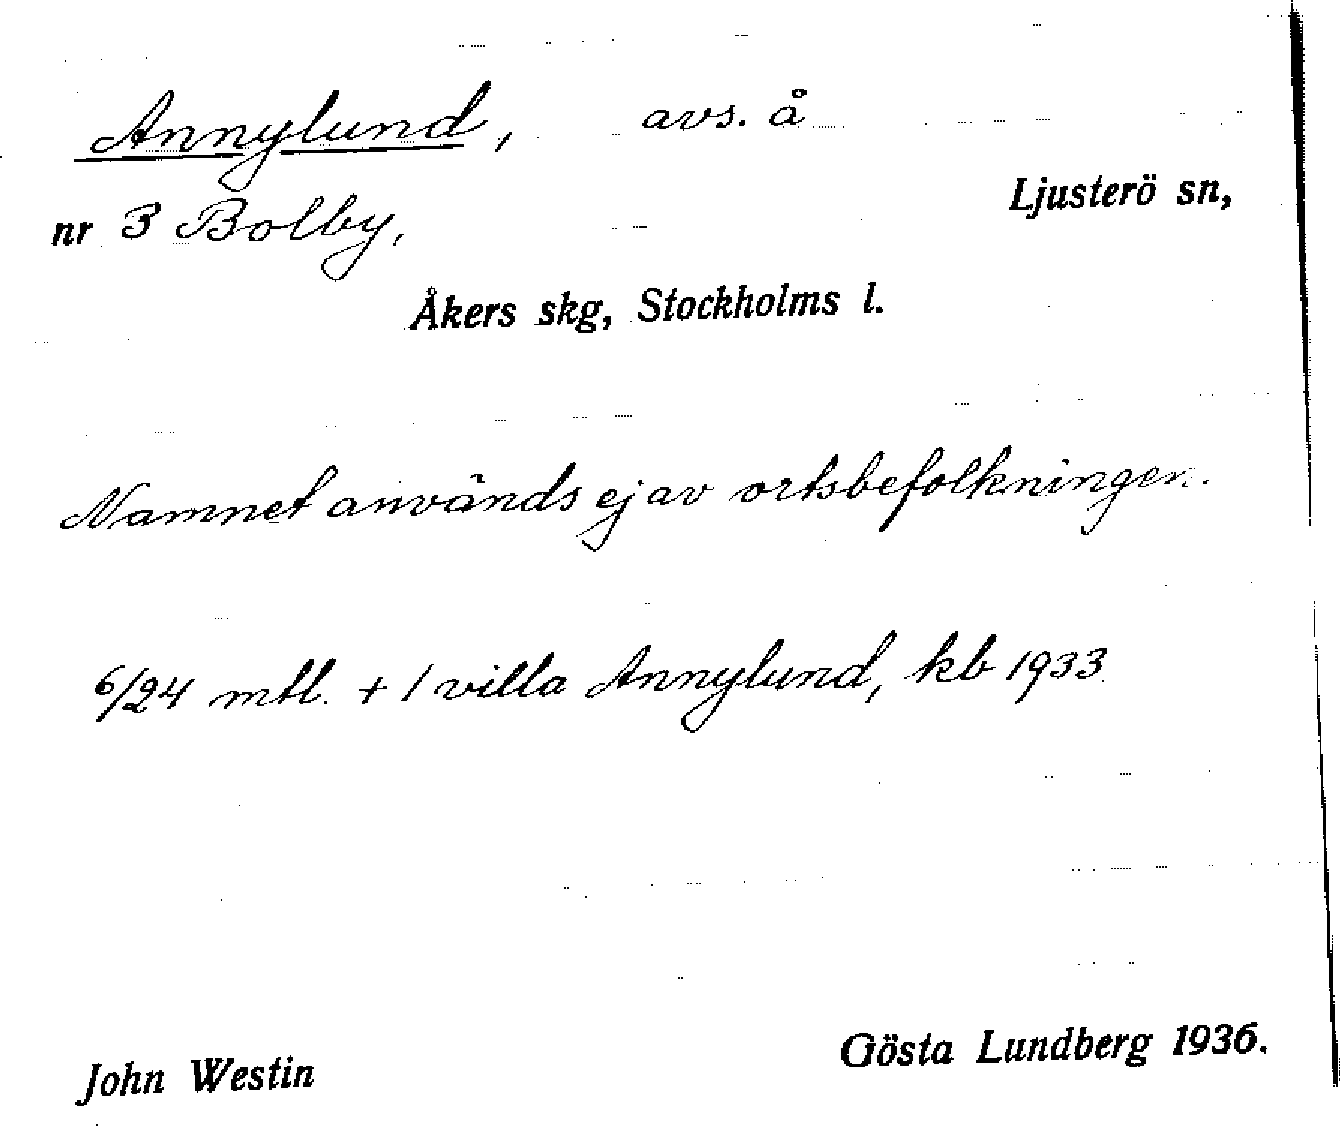 Annylund, avs. å
Ljusterö sn,
nr 3 Bolby,
Åkers skg, Stockholms l.
Namnet används ej av ortsbefolkningen.
6/24 mtl. + 1 villa Annylund, kb 1933.
John Westin
Gösta Lundberg 1936.